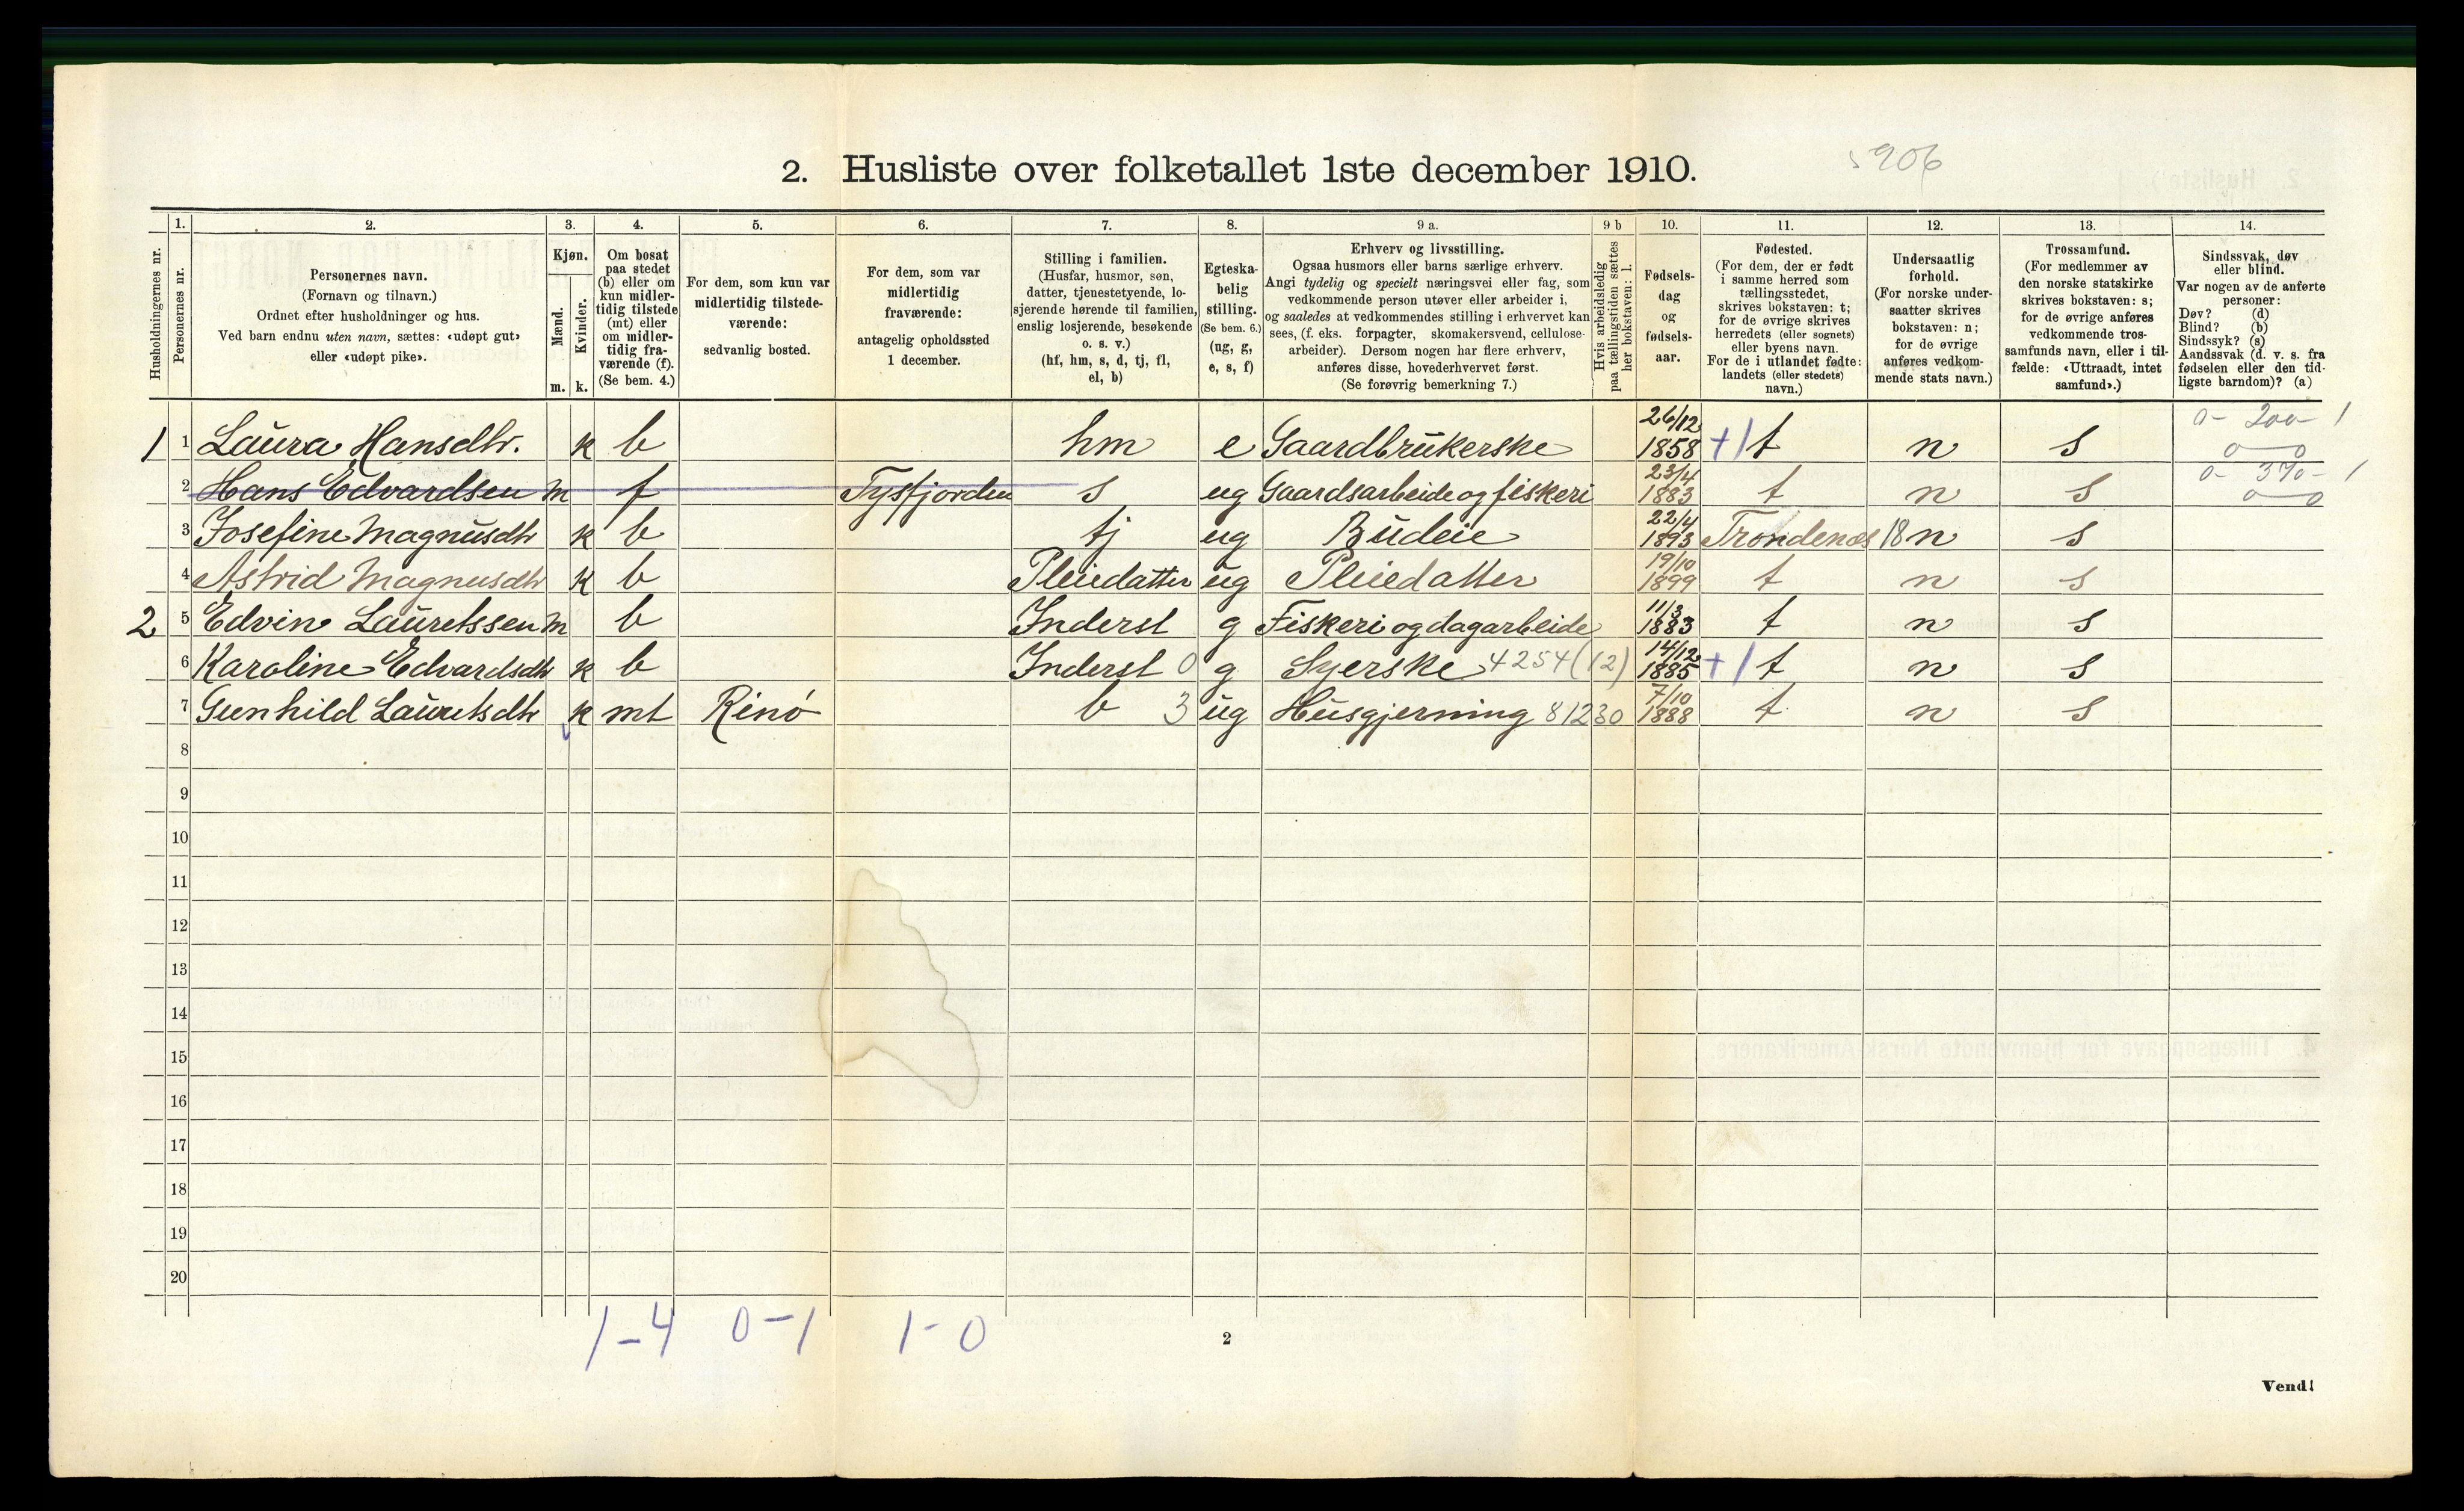 2. Husliste over folketallet 1ste december 1910.
5906
Husholdningernes nr.
1. Personernes nr.
2. Personernes navn.
(Fornavn og tilnavn.)
Ordnet efter husholdninger og hus.
Ved barn endnu uten navn, sættes: «udøpt gut»
eller «udøpt pike».
3. Kjøn.
Mænd. Kvinder.
m. k.
4. Om bosat
paa stedet
(b) eller om
kun midler-
tidig tilstede
(mt) eller
om midler-
tidig fra-
værende (f).
(Se bem. 4.)
5. For dem, som kun var
midlertidig tilstede-
værende:
sedvanlig bosted.
6. For dem, som var
midlertidig
fraværende:
antagelig opholdssted
1 december.
7. Stilling i familien.
(Husfar, husmor, søn,
datter, tjenestetyende, lo-
sjerende hørende til familien,
enslig losjerende, besøkende
o. s. v.)
(hf, hm, s, d, tj, fl,
el, b)
8. Egteska-
belig
stilling.
(Se bem. 6.)
(ug, g,
e, s, f)
9 a. Erhverv og livsstilling.
Ogsaa husmors eller barns særlige erhverv.
Angi tydelig og specielt næringsvei eller fag, som
vedkommende person utøver eller arbeider i,
og saaledes at vedkommendes stilling i erhvervet kan
sees, (f. eks. forpagter, skomakersvend, cellulose-
arbeider). Dersom nogen har flere erhverv,
anføres disse, hovederhvervet først.
(Se forøvrig bemerkning 7.)
9 b Hvis arbeidsledig
paa tællingstiden sættes
her bokstaven: l.
10. Fødsels-
dag
og
fødsels-
aar.
11. Fødested.
(For dem, der er født
i samme herred som
tællingsstedet,
skrives bokstaven: t;
for de øvrige skrives
herredets (eller sognets)
eller byens navn.
For de i utlandet fødte:
landets (eller stedets)
navn.)
12. Undersaatlig
forhold.
(For norske under-
saatter skrives
bokstaven: n;
for de øvrige
anføres vedkom-
mende stats navn.)
13. Trossamfund.
(For medlemmer av
den norske statskirke
skrives bokstaven: s;
for de øvrige anføres
vedkommende tros-
samfunds navn, eller i til-
fælde: «Uttraadt, intet
samfund».)
14. Sindssvak, døv
eller blind.
Var nogen av de anførte
personer:
Døv? (d)
Blind? (b)
Sindssyk? (s)
Aandssvak (d. v. s. fra
fødselen eller den tid-
ligste barndom)? (a)
1 1 Laura Hansdtr. k b hm e Gaardbrukerske 26/12 1858 +1 t n s 0- 200- 1 0-0
2 Hans Edvardsen m f Tysfjorden s ug Gaardsarbeide og fiskeri 23/4 1883 t n s 0- 370- 1 0-0
3 Josefine Magnusdtr k b tj ug Budeie 22/4 1893 Trondenæs 18 n s
4 Astrid Magnusdtr k b Pleiedatter ug Pleiedatter 19/10 1899 t n s
2 5 Edvin Lauretssen m b Inderst g Fiskeri og dagarbeide 11/3 1883 t n s
6 Karoline Edvardsdtr k b Inderst 0 g Syerske 4254(12) 14/12 1885 +1 t n s
7 Gunhild Lauretsdtr k mt Rinø b 3 ug Husgjerning 81230 7/10 1888 t n s
8
9
10
11
12
13
14
15
16
17
18
19
20
1-4 0-1 1-0
2
Vend!